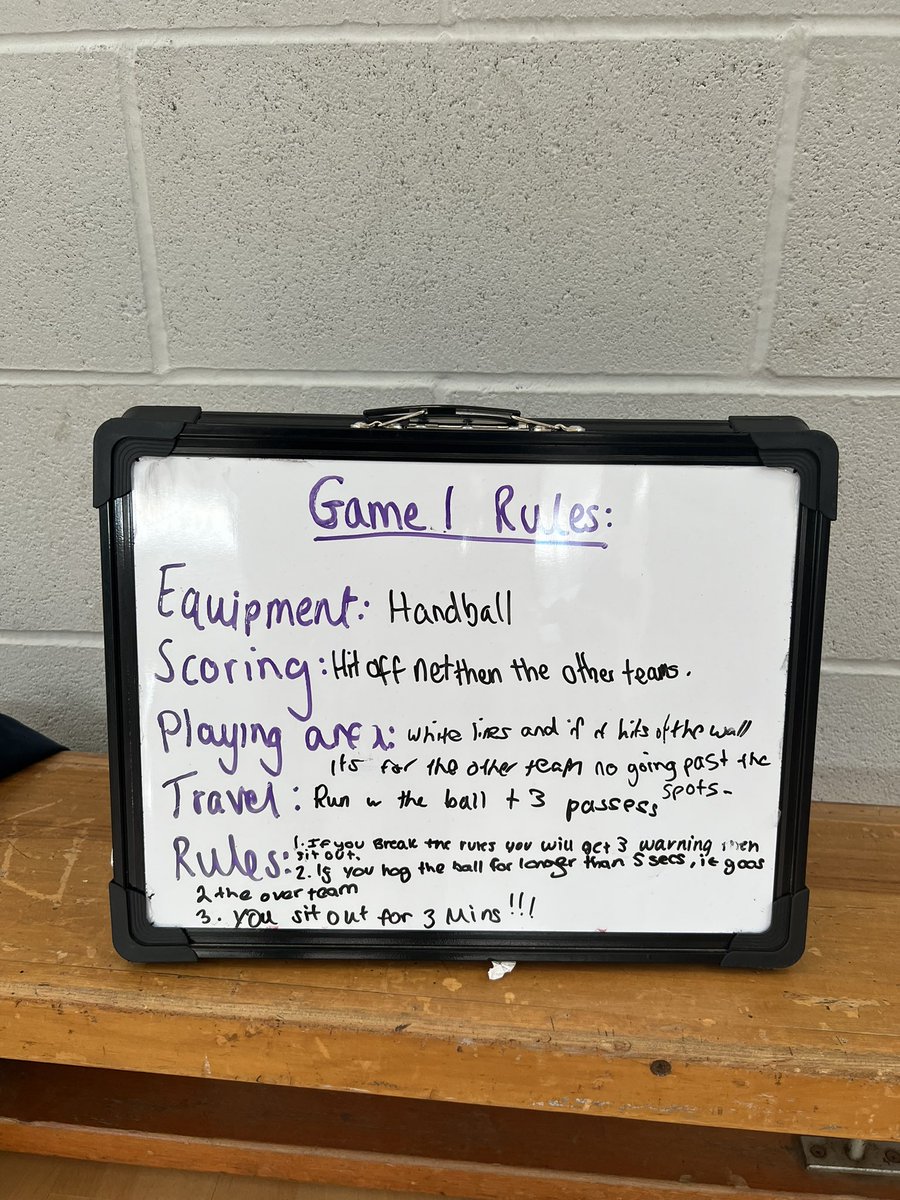 Game 1 Rules:
Equipment: Handball
Scoring: Hit off net then the other teams.
Playing area: white lines and if it hits of the wall
its for the other team no going past the
spots-
Travel: Run w the ball + 3 passess
Rules: 1. If you Break the rules you will get 3 warning then
sit out.
2. If you hog the ball for longer than 5 secs, it goas
2 the over team
3. you sit out for 3 Mins!!!